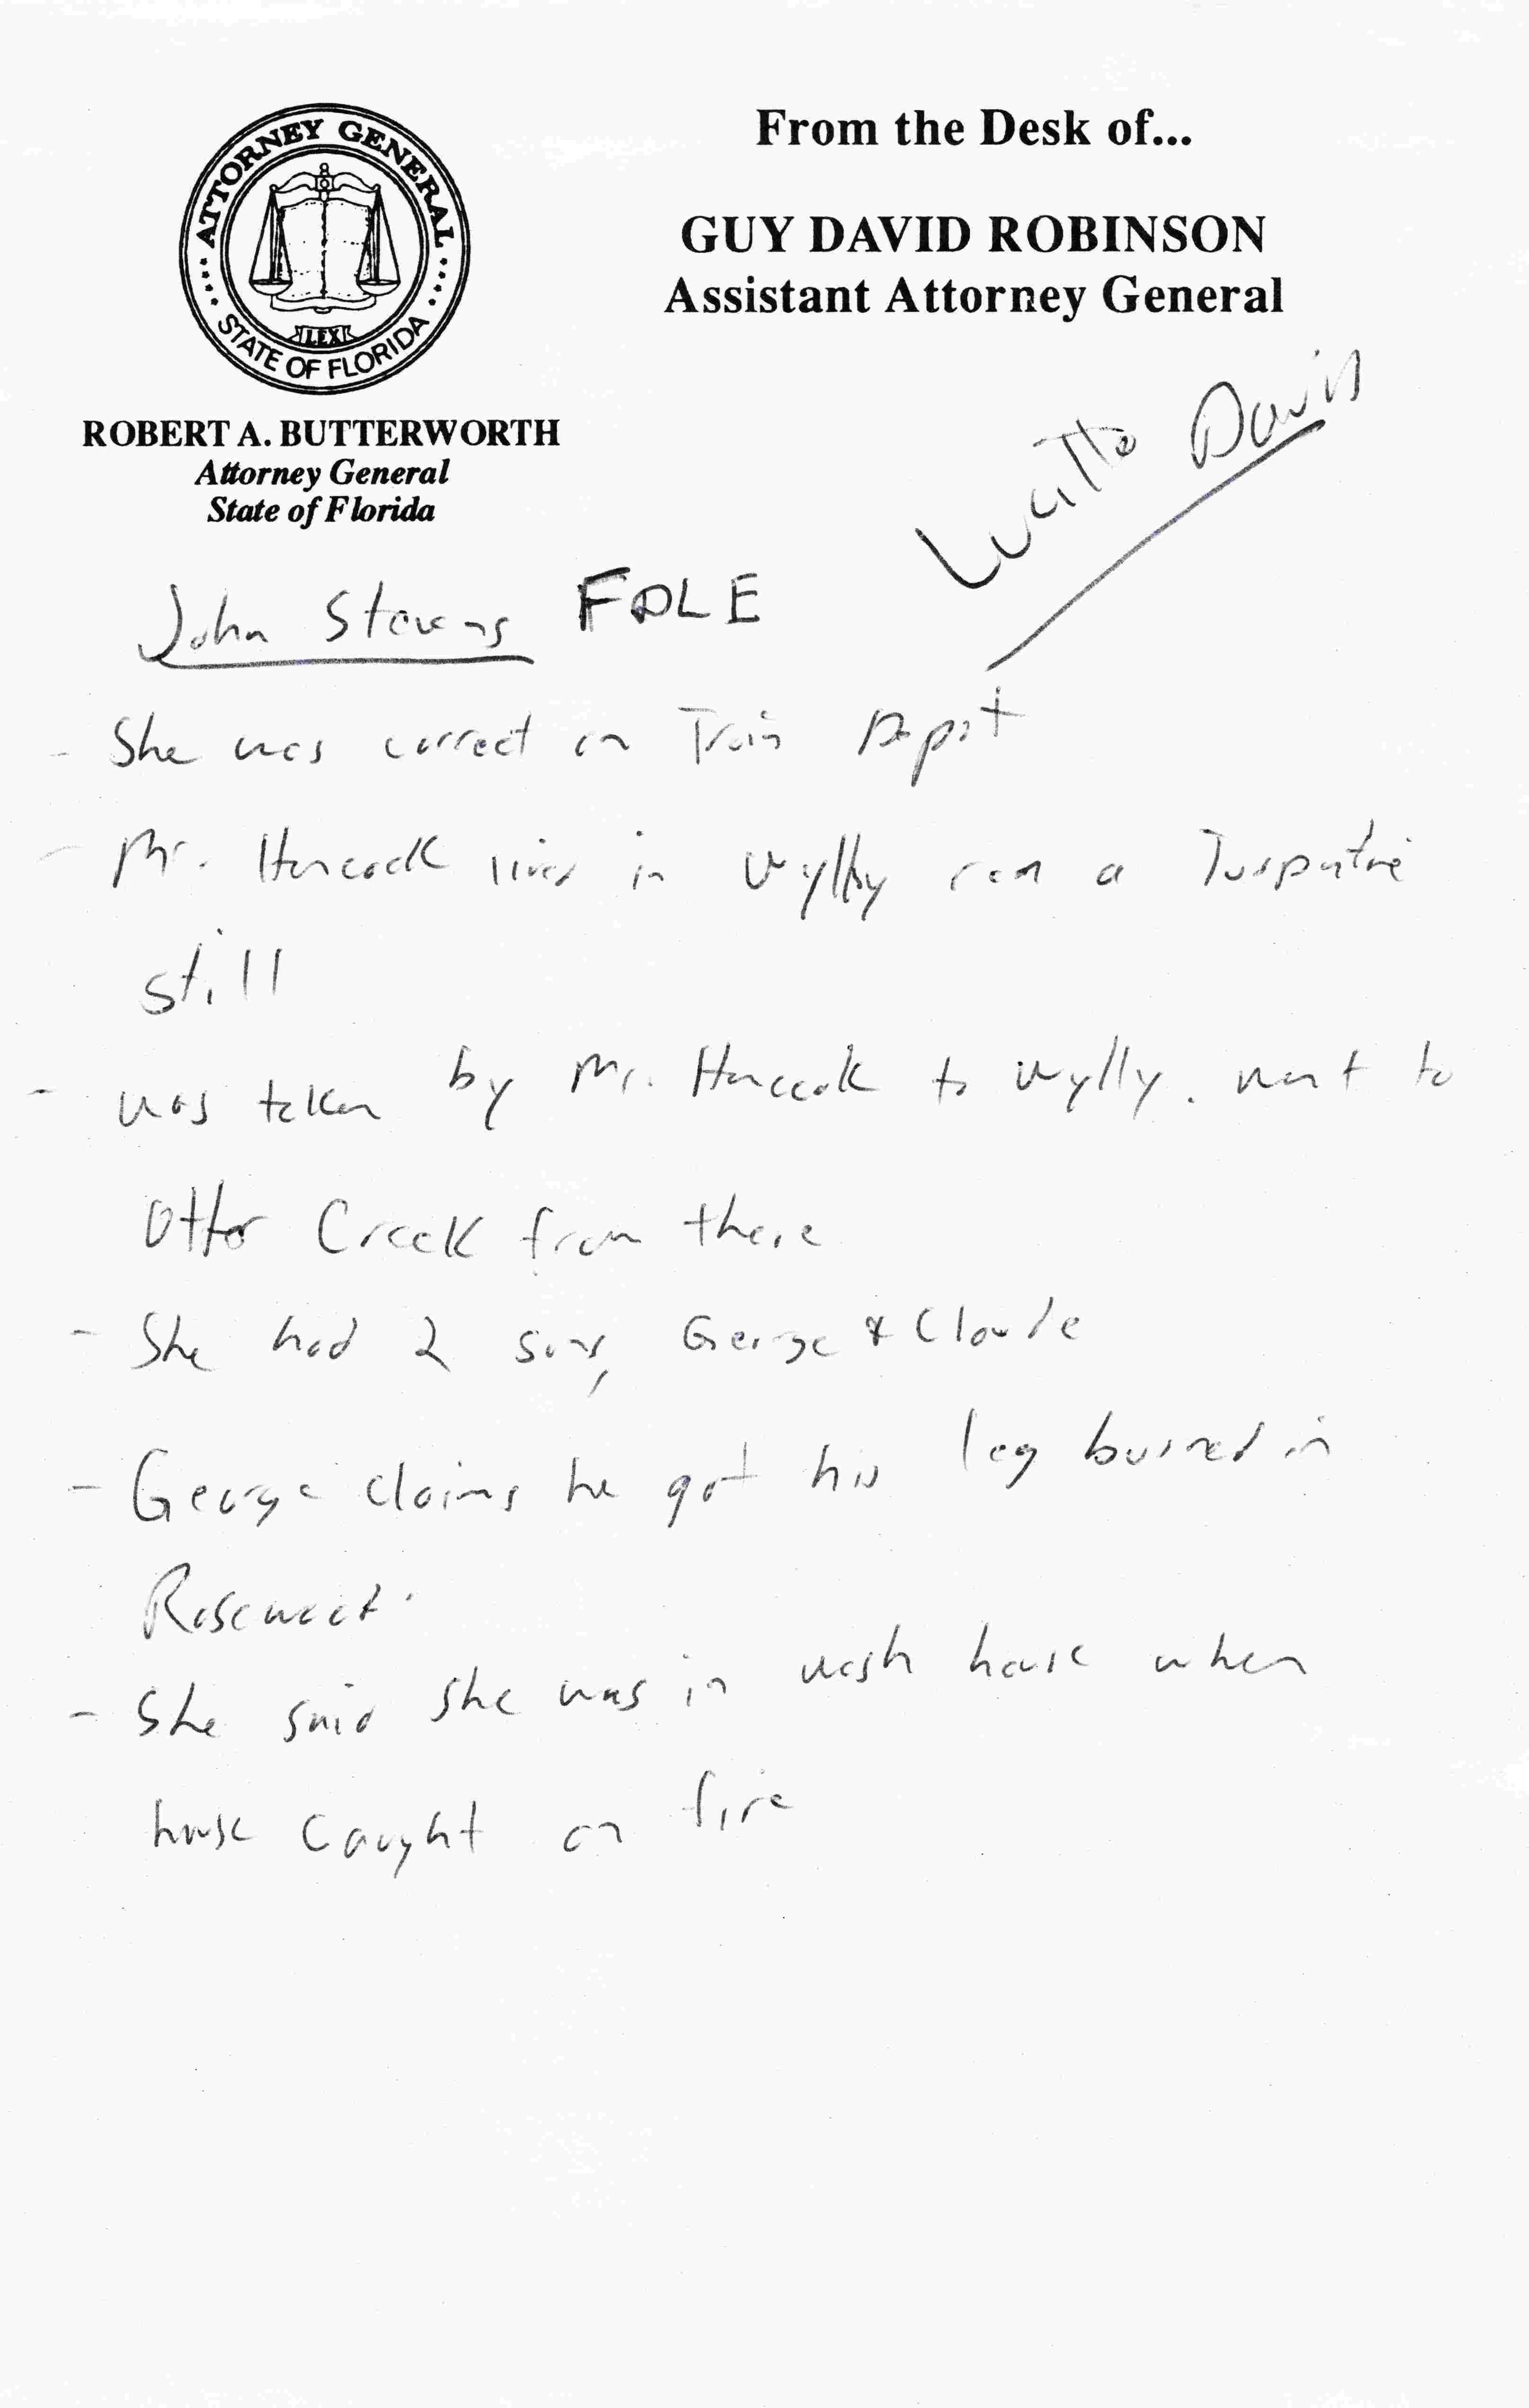 ATTORNEY GENERAL
STATE OF FLORIDA
LEX
ROBERT A. BUTTERWORTH
Attorney General
State of Florida
From the Desk of...
GUY DAVID ROBINSON
Assistant Attorney General
Davis
John Stevens FDLE
- She was correct on Train Depot
- Mr. Hancock lived in Wylly ran a
still
- was taken by Mr. Hancock to Wylly. went to
Otter Creek from there
- She had 2 sons, George & Claude
- George claims he got his leg burned in
Rosewood.
- She said she was in wash house when
house caught on fire